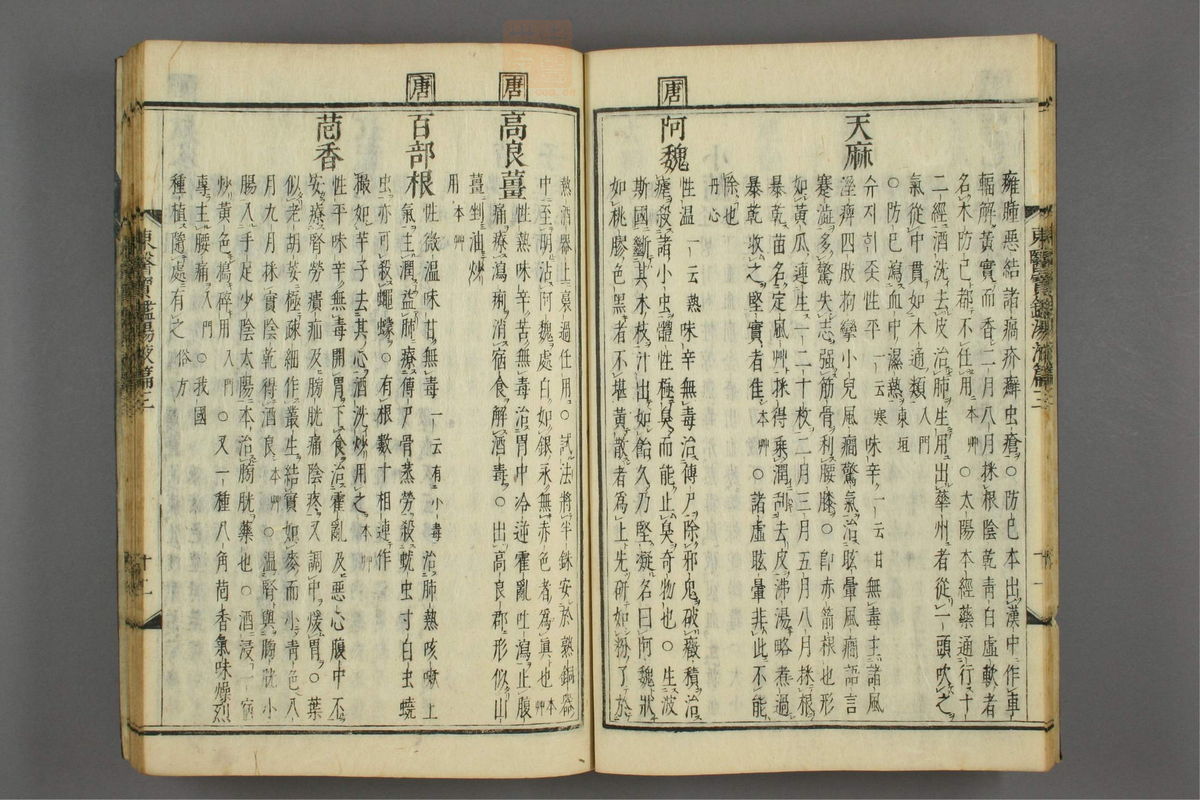 雍腫惡結諸瘑疥癬虫瘡○防巳本出漢中作車
輻解黃實而香二月八月採根陰乾靑白虛軟者
名木防巳都不任用本艸○太陽本經藥通行十
二經酒洗去皮治肺生用出華州者從一頭吹之
氣從中貫如木通類入門
○防巳瀉血中濕熱東垣
天麻
슈자ᄒᆡ불휘性平一云寒味辛一云甘無毒主諸風
濕痺四肢拘攣小兒風癎驚氣治眩暈風癎語言
蹇澁多驚失志强筋骨利腰膝○卽赤箭根也形
如黃瓜連生一二十枚二月三月五月八月採根
暴乾苗名定風艸採得乘潤刮去皮沸湯略煮過
暴乾收之堅實者佳本艸○諸虛眩暈非此不能
除也
丹心
唐
阿魏
性溫一云熱味辛無毒治傳尸除邪鬼破癥積治
瘧殺諸小虫體性極臭而能止臭奇物也○生波
斯國斷其木枝汁出如飴久乃堅凝名曰阿魏狀
如桃膠色黑者不堪黃散者爲上先硏如粉了於
東醫寶鑑湯液篇三
十一
熱酒器上裛過任用○試法將半銖安於熟銅器
中至明沾阿魏處白如銀汞無赤色者爲眞也本艸
唐
高良薑
性熱味辛苦無毒治胃中冷逆霍亂吐瀉止腹
痛療瀉痢消宿食解酒毒○出高良郡形似山
薑剉油炒
用本艸
唐
百部根
性微溫味甘無毒一云有小毒治肺熱咳嗽上
氣主潤益肺療傳尸骨蒸勞殺蚘虫寸白虫蟯
虫亦可殺蠅蠓○有根數十相連作
撮如芋子去其心酒洗炒用之本艸
茴香
性平味辛無毒開胃下食治霍亂及惡心腹中不
安療腎勞㿉疝及膀胱痛陰疼又調中煖胃○葉
似老胡荽極疎細作叢生結實如麥而小靑色八
月九月採實陰乾得酒良本艸○溫腎與膀胱小
腸入手足少陰太陽本治膀胱藥也○酒浸一宿
炒黃色搗碎用入門○又一種八角茴香氣味燥烈
專主腰痛入門○我國
種植隨處有之俗方
東醫寶鑑湯液篇三
十一